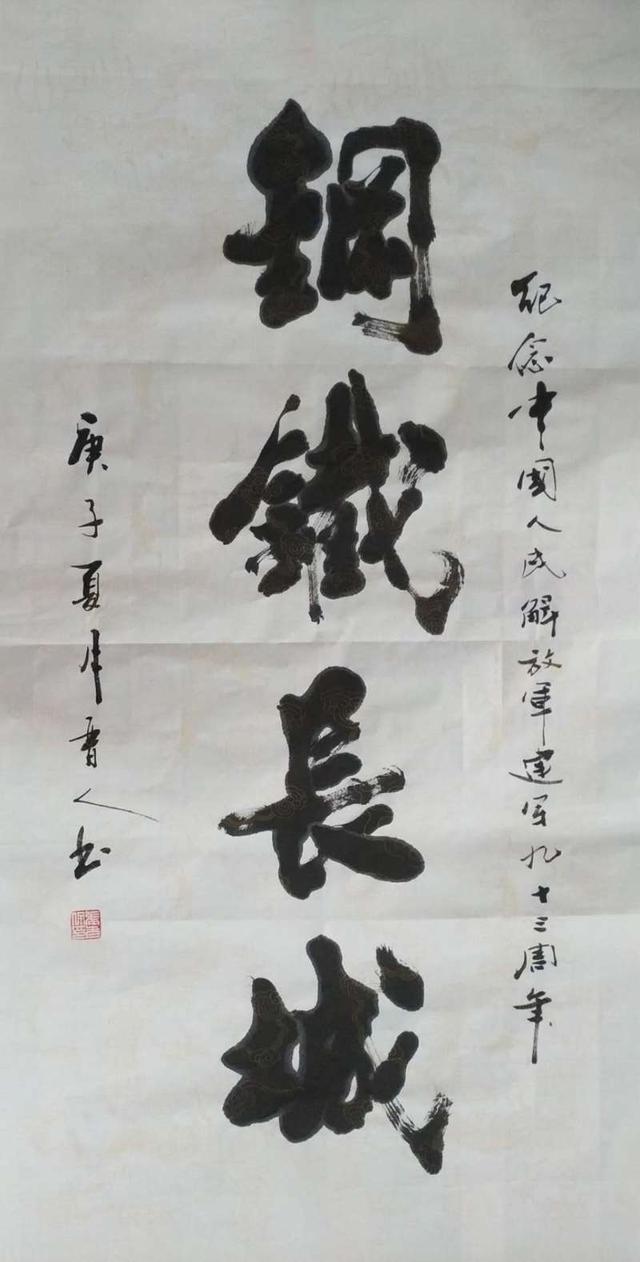 紀念中國人民解放軍建军九十三周年
鋼鐵長城
庚子夏月晋人书